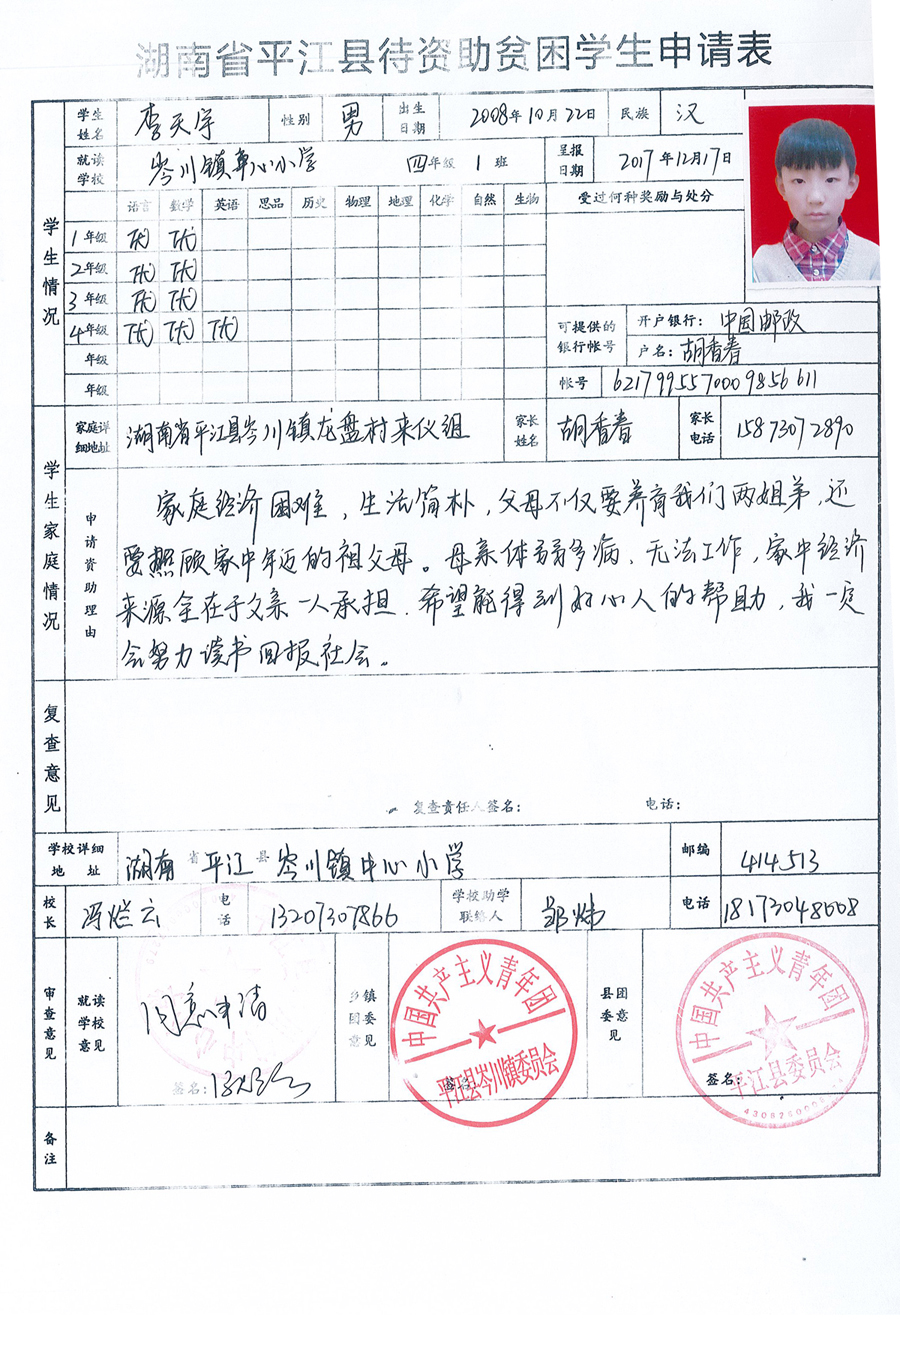 湖南省平江县待资助贫困学生申请表
学生姓名 李天宇 性别 男 出生日期 2008年10月22日 民族 汉
就读学校 岑川镇中心小学 四年级 1班 呈报日期 2017年12月17日
学生情况
语言 数学 英语 思品 历史 物理 地理 化学 自然 生物 受过何种奖励与处分
1年级
2年级
3年级
4年级
年级
年级
可提供的银行帐号 开户银行: 中国邮政
户名: 胡香春
帐号 6217995570009856611
学生家庭情况
家庭详细地址 湖南省平江县岑川镇龙盘村来仪组 家长姓名 胡香春 家长电话 15873072890
申请资助理由
家庭经济困难,生活简朴,父母不仅要养育我们两姐弟,还
要照顾家中年迈的祖父母。母亲体弱多病,无法工作,家中经济
来源全在于父亲一人承担,希望能得到好心人的帮助,我一定
会努力读书回报社会。
复查意见
复查责任人签名: 电话:
学校详细地址 湖南省平江县岑川镇中心小学 邮编 414513
校长 冯烂云 电话 13207307866 学校助学联络人 邹炜 电话 18173048608
审查意见
就读学校意见 同意申请 签名:
乡镇团委意见 签名:
中国共产主义青年团
平江县岑川镇委员会
县团委意见 签名:
中国共产主义青年团
平江县委员会
备注